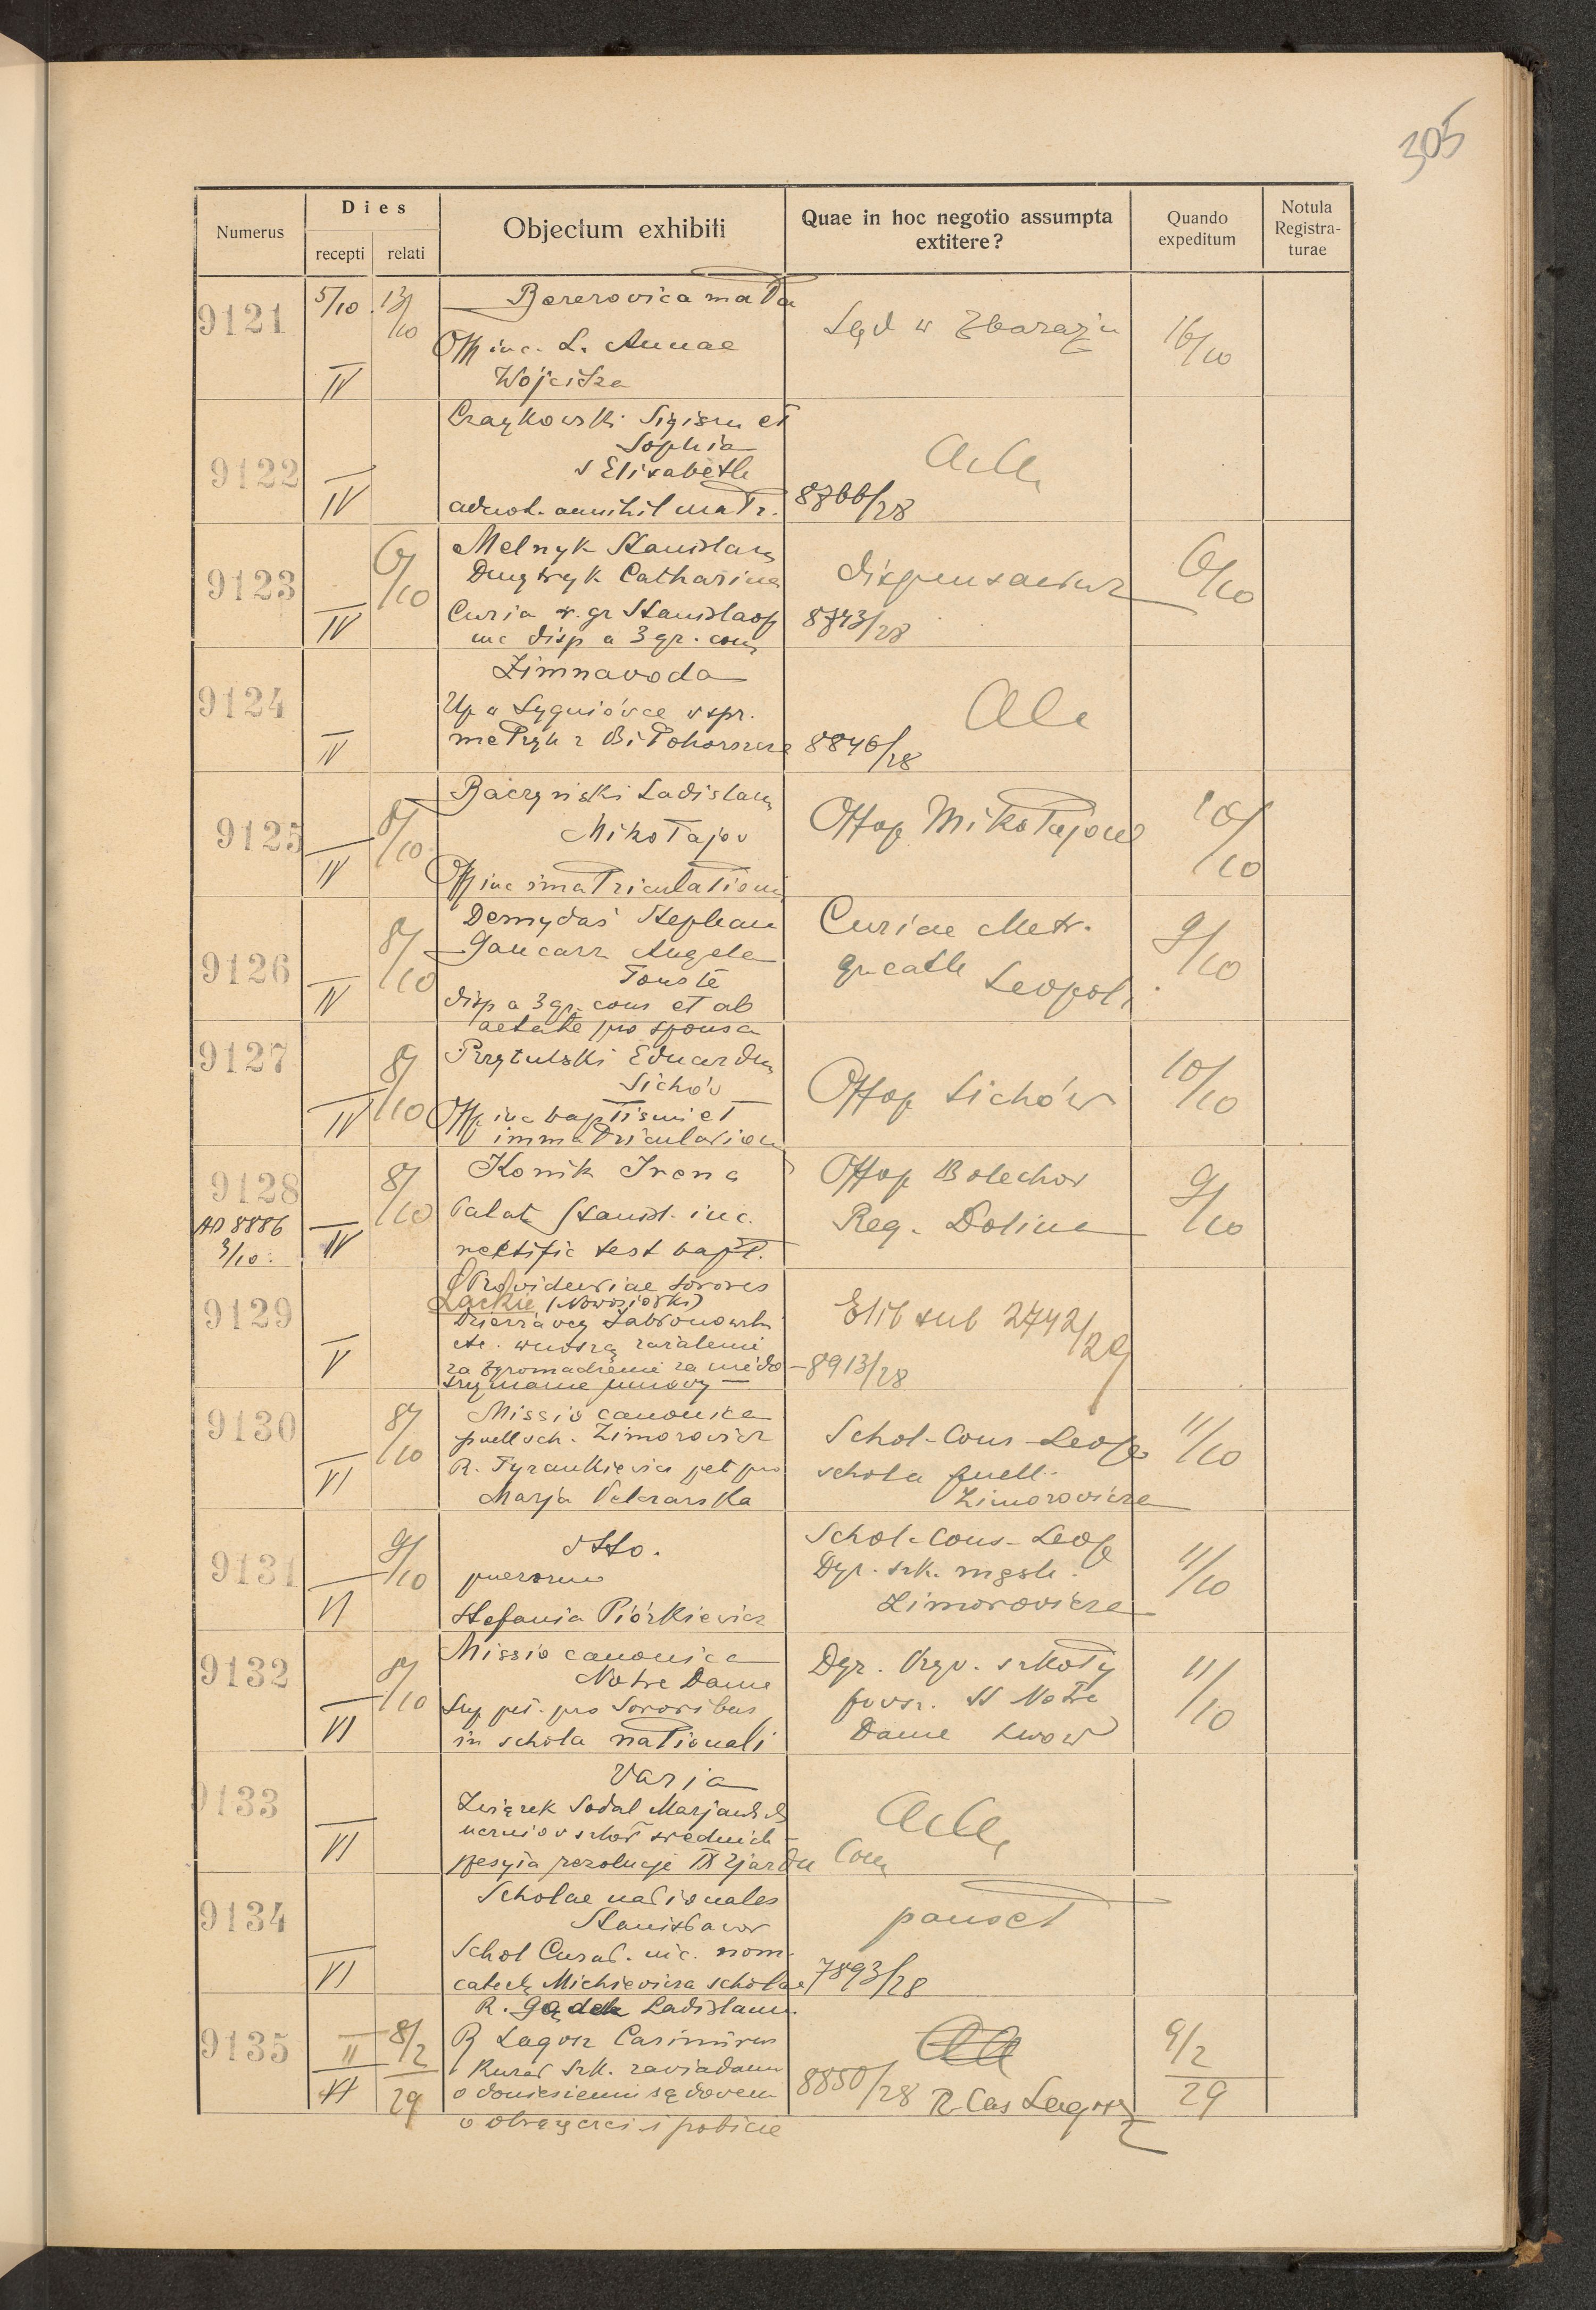 305
Numerus
Dies
recepti
relati
Objectum exhibiti
Quae in hoc negotio assumpta
extitere?
Quando
expeditum
Notula
Registra-
turae
9121
5/10
13/10
IV
Bererovica mała
Off inc. L. Annae
Wójcicka
Sąd w Zbarażu
16/10
9122
IV
Czaykowski Sigism et
Sophia
s Elisabeth
adnot. annihil matr.
8766/28
9123
6/10
IV
Melnyk Stanislaus
Dmytryk Catharina
Curia r. gr Stanislaop
inc disp a 3 gr. cons
dispensantur
8743/28
6/10
9124
IV
Zimnavoda
Up w Sygniówce v spr.
metryk z Biłohorszcze
8846/28
9125
8/10
IV
Baczyński Ladislaus
Mikołajov
Off inc immatriculationis
Offop Mikołajow
10/10
9126
8/10
IV
Demydaś Stephan
Gancarz Angela
Touste
disp a 3 gr. cons et ab
aetate pro sponsa
Curiae Metr.
gr cath
Leopoli
9/10
9127
8/10
IV
Przytulski Eduardus
Sichów
Off inc baptismi et
immatriculationis
Offop Sichów
10/10
9128
AD 8886
3/10
8/10
IV
Konik Irena
Palat Stanisl. inc.
rectific test bapt.
Offop Bolechov
Reg. Dolina
9/10
9129
V
Providentiae Sorores
Lackie (Nowosiołki)
Dzierżawcy
etc. wnoszą zażalenie
za Zgromadzenie za niedo
trzymanie umowy
Elib sub 2742/29
8913/28
9130
8/10
VI
Missio canonica
puell sch. Zimorovicz
R. Tyrankievicz pet pro
Marja
Schol-Cons-Leop
schola puell.
Zimorovicza
11/10
9131
9/10
VI
dtto.
puerorum
Stefania Piórkievicz
Schol-Cons-Leop
Dyr. szk. męsk.
Zimorovicza
11/10
9132
8/10
VI
Missio canonica
Notre Dame
Sup pet. pro Sororibus
in schola nationali
Dyr. Pryv. szkoły
povsz. SS Notre
Dame Lwow
11/10
9133
VI
Varia
Związek Sodal Marjańsk
uczniov szkoł średnich
przesyła rezolucje IX zjazdu
9134
VI
Scholae nationales
Stanisłavov
Schol Curat. inc. nom
catech Michievicza scholae
ponset
7893/28
9135
II
VI
8/2
29
R. Gądek Ladislaum
R Lagosz Casimirus
Kurat szk. zaviadam
o doniesieniu sądovem
o obrazę czci i pobicie
8850/28 R Cas Lagosz
9/2
29